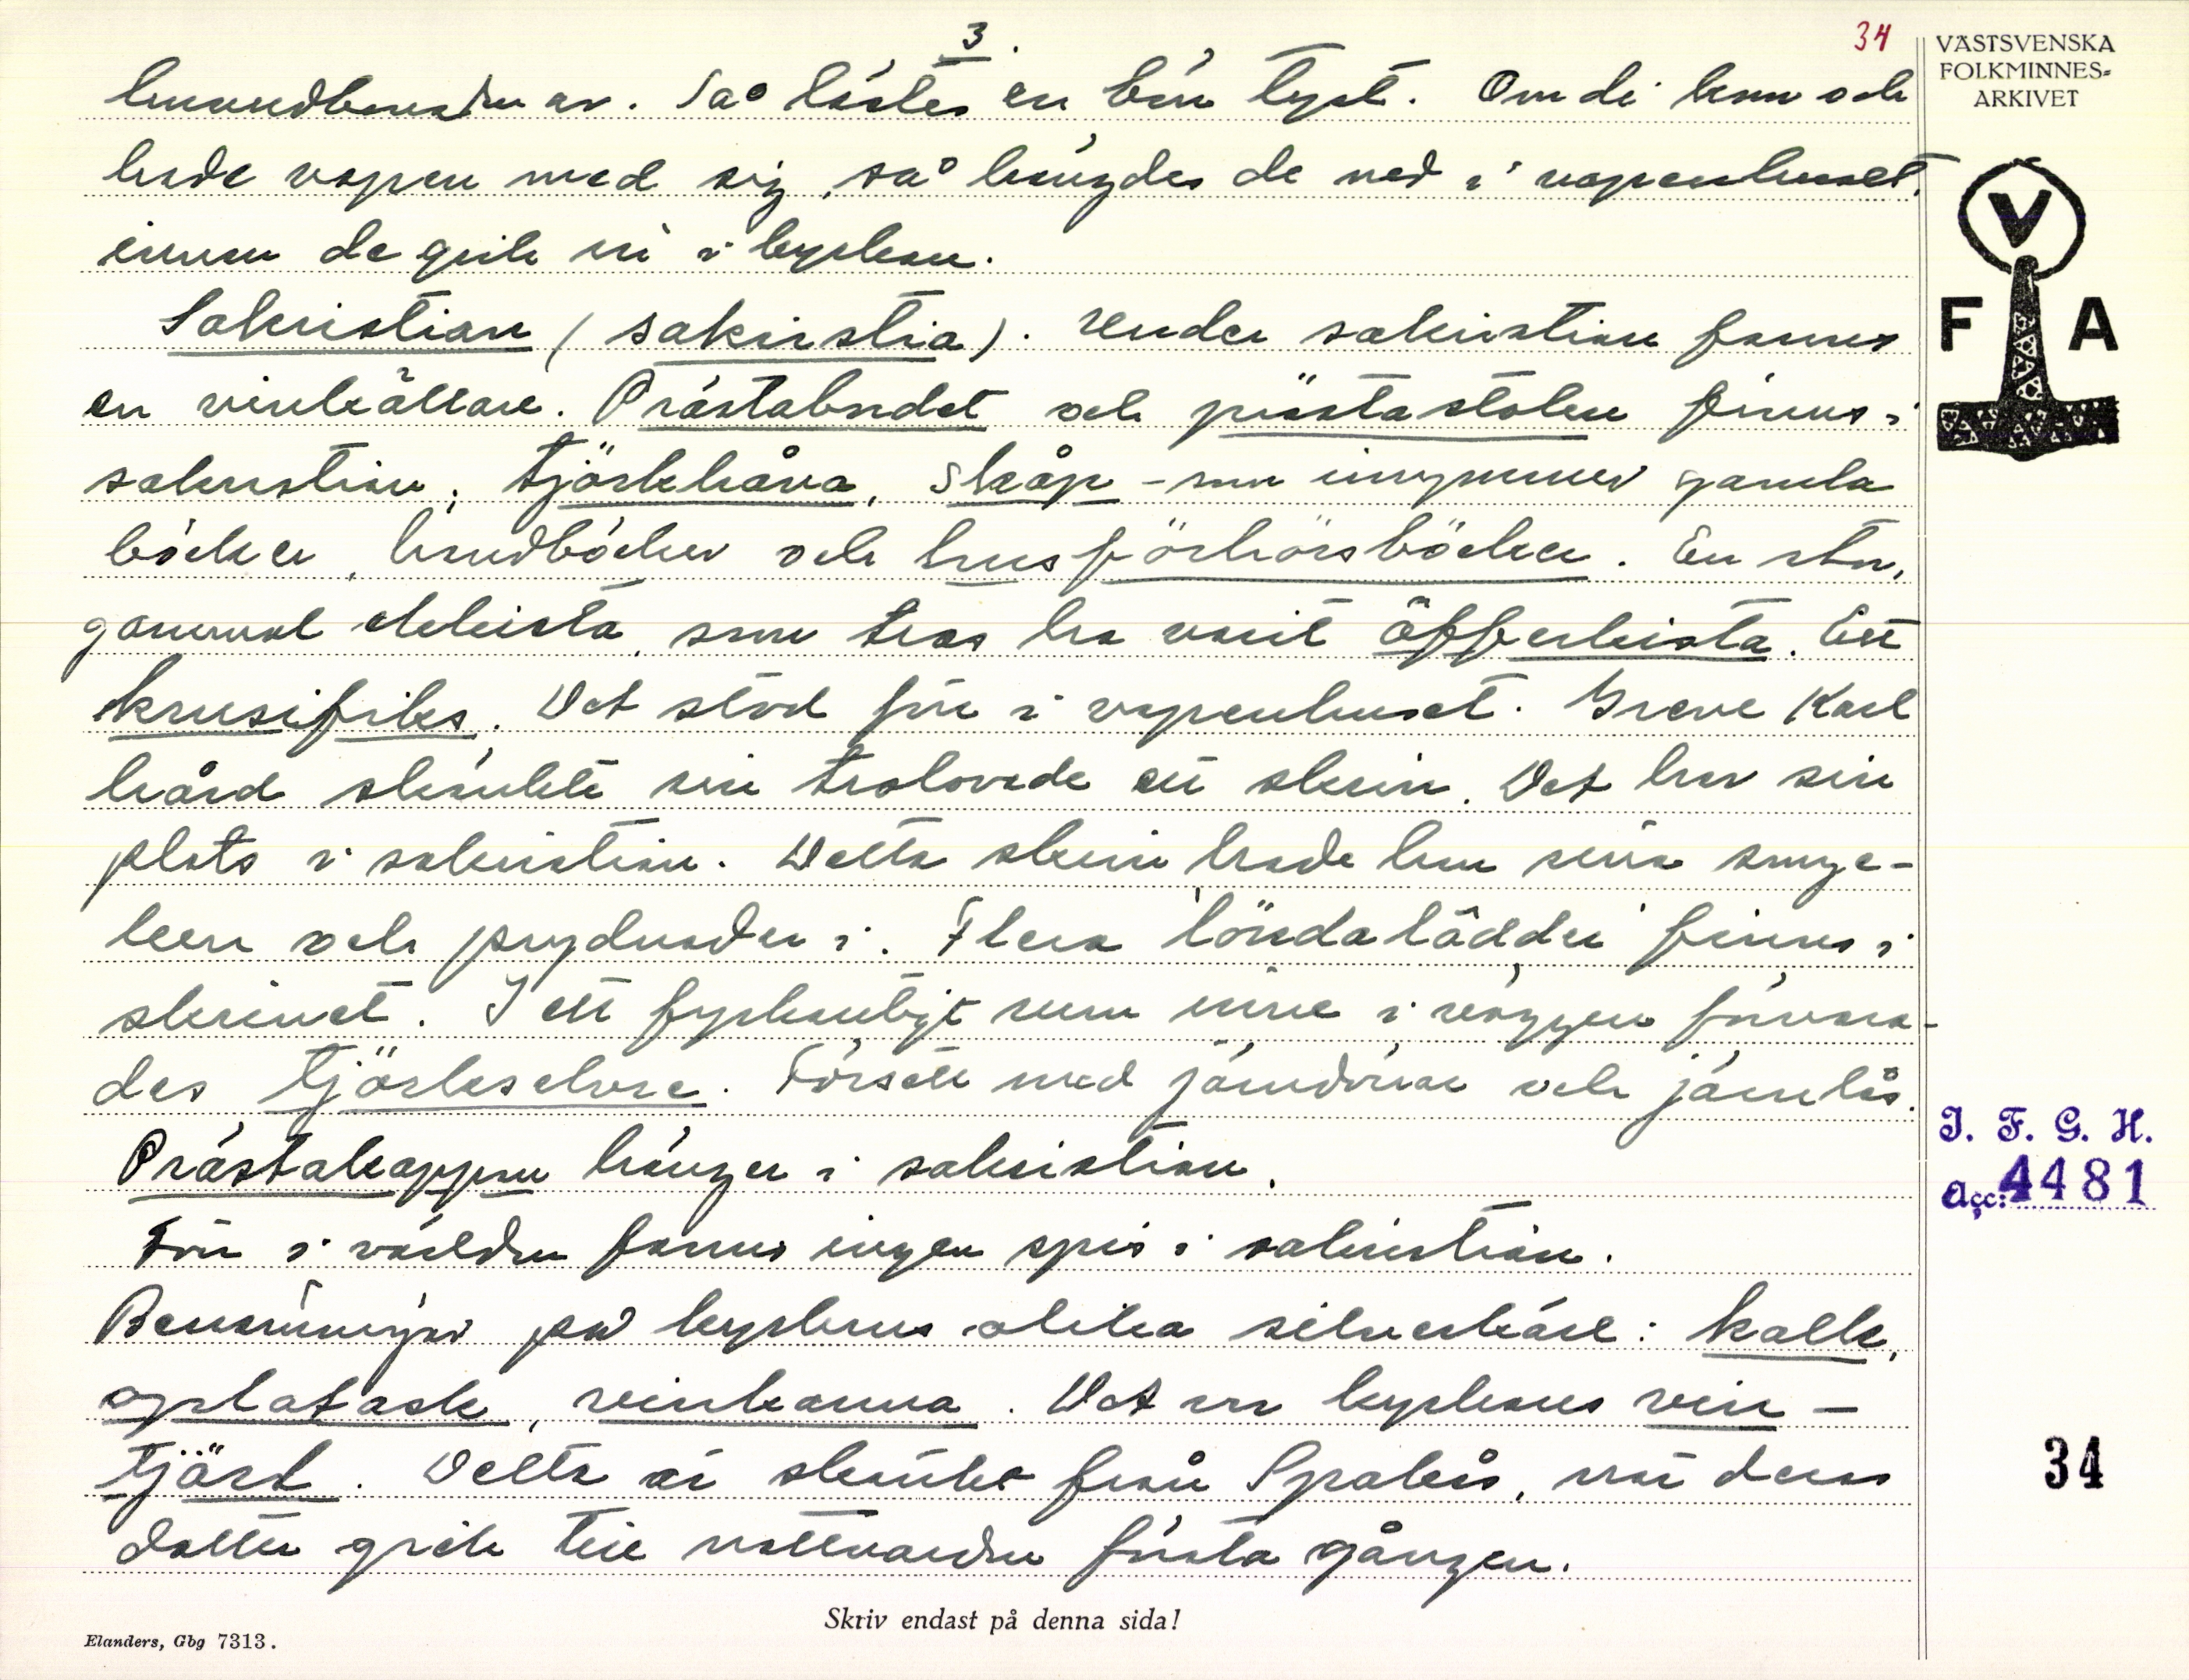 3.
34
huvudbonaden av. Så lästes en bön tyst. Om de kom och
hade vapen med sig, så hängdes de ned i vapenhuset.
innan de gick in i kyrkan.
Sakristian (sakirstia). Under sakristian fanns
en vinkällare. Prästabordet och prästastolen finns i
sakristian, tjörkhåva, Skåp - som inrymmer gamla
böcker, handböcker och husförhörsböcker. En stor,
gammal ekkista, som tros ha varit åfferkista. Ett
krusifiks. Det stod förr i vapenhuset. Greve Karl
hård skänkte sin trolovade ett skrin. Det har sin
plats i sakristian. Detta skrin hade hon sina smyc-
ken och prydnader i. Flera löndalådder finns i
skrinet. I ett fyrkantigt rum inne i väggen förvara-
des tjörkselvre. Försett med järndörrar och järnlås.
Prästakappan hänger i sakristian.
Förr i världen fanns ingen spis i sakristian.
Benämningar på kyrkans olika silverkärl: kalk,
oplatask, vinkanna. Det var kyrkans vin-
tjärl. Detta är skänkt från Spakås, när deras
dotter gick till nattvarden första gången.
Skriv endast på denna sida!
Elanders, Gbg 7313.
VÄSTSVENSKA
FOLKMINNES-
ARKIVET
V
F A
I. F. G. H.
Acc: 4481
34